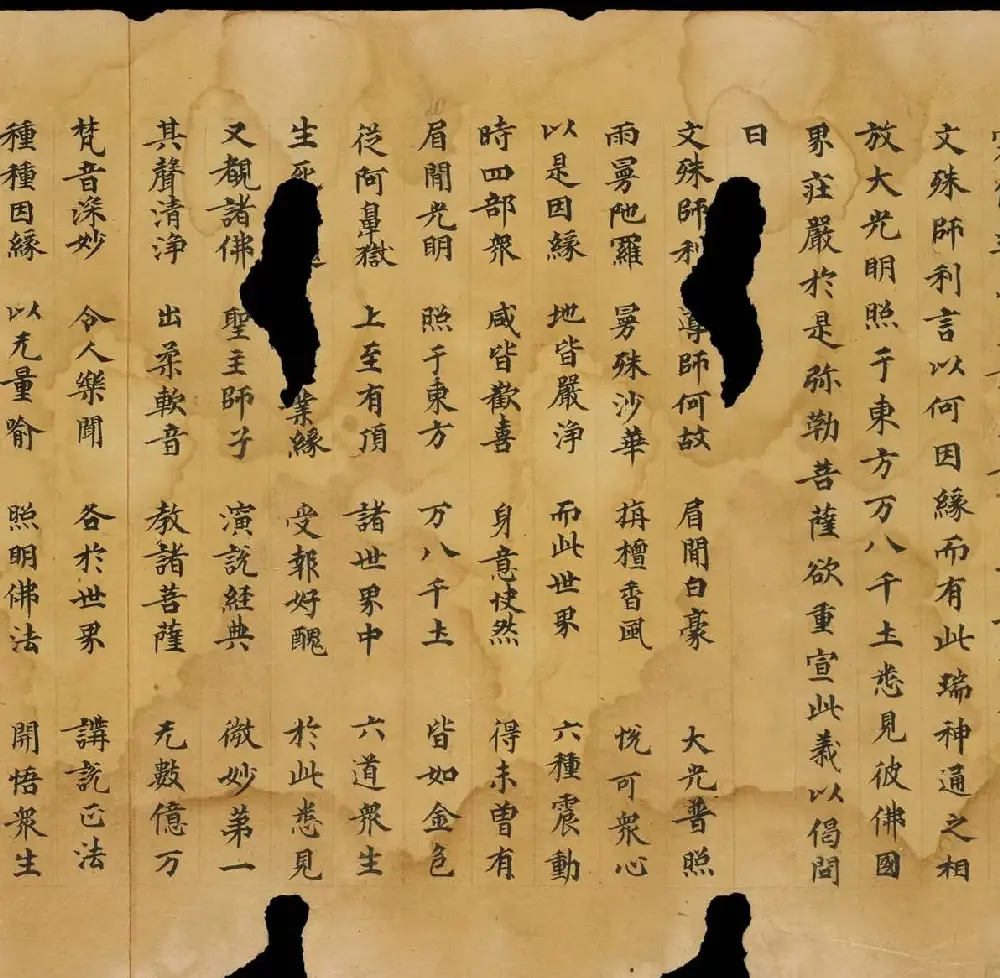 文殊師利言以何因緣而有此瑞神通之相
放大光明照于東方万八千土悉見彼佛國
界莊嚴於是弥勒菩薩欲重宣此義以偈問
曰
文殊師利 導師何故 眉間白豪 大光普照
雨曼陁羅 曼殊沙華 栴檀香風 悅可衆心
以是因緣 地皆嚴淨 而此世界 六種震動
時四部衆 咸皆歡喜 身意快然 得未曾有
眉間光明 照于東方 万八千土 皆如金色
從阿鼻獄 上至有頂 諸世界中 六道衆生
生死 業緣 受報好醜 於此悉見
又覩諸佛 聖主師子 演說經典 微妙第一
其聲清淨 出柔軟音 教諸菩薩 无數億万
梵音深妙 令人樂聞 各於世界 講說正法
種種因緣 以无量喻 照明佛法 開悟衆生